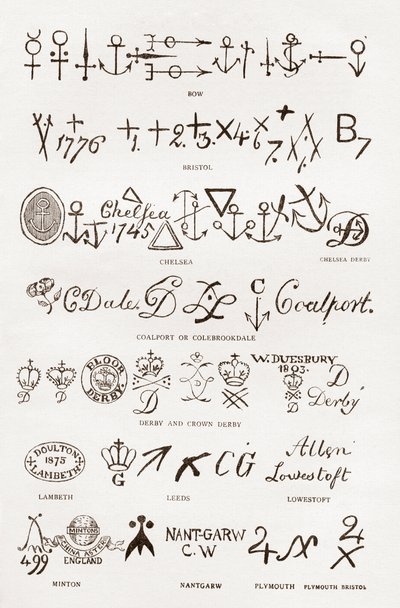 BOW
1776 1. 2. 3. 4. 6 7. B7
BRISTOL
Chelsea
1745
CHELSEA
CHELSEA DERBY
CDale. CD C Coalport.
COALPORT OR COLEBROOKDALE
BLOOR
DERBY
D
D
D
W. DUESBURY
1803.
D
D
Derby
DERBY AND CROWN DERBY
DOULTON
1875
LAMBETH
G
CG
Allen
Lowestoft
LAMBETH
LEEDS
LOWESTOFT
499
MINTONS
CHINA ASTER
ENGLAND
NANT-GARW
C.W
MINTON
NANTGARW
PLYMOUTH
PLYMOUTH BRISTOL